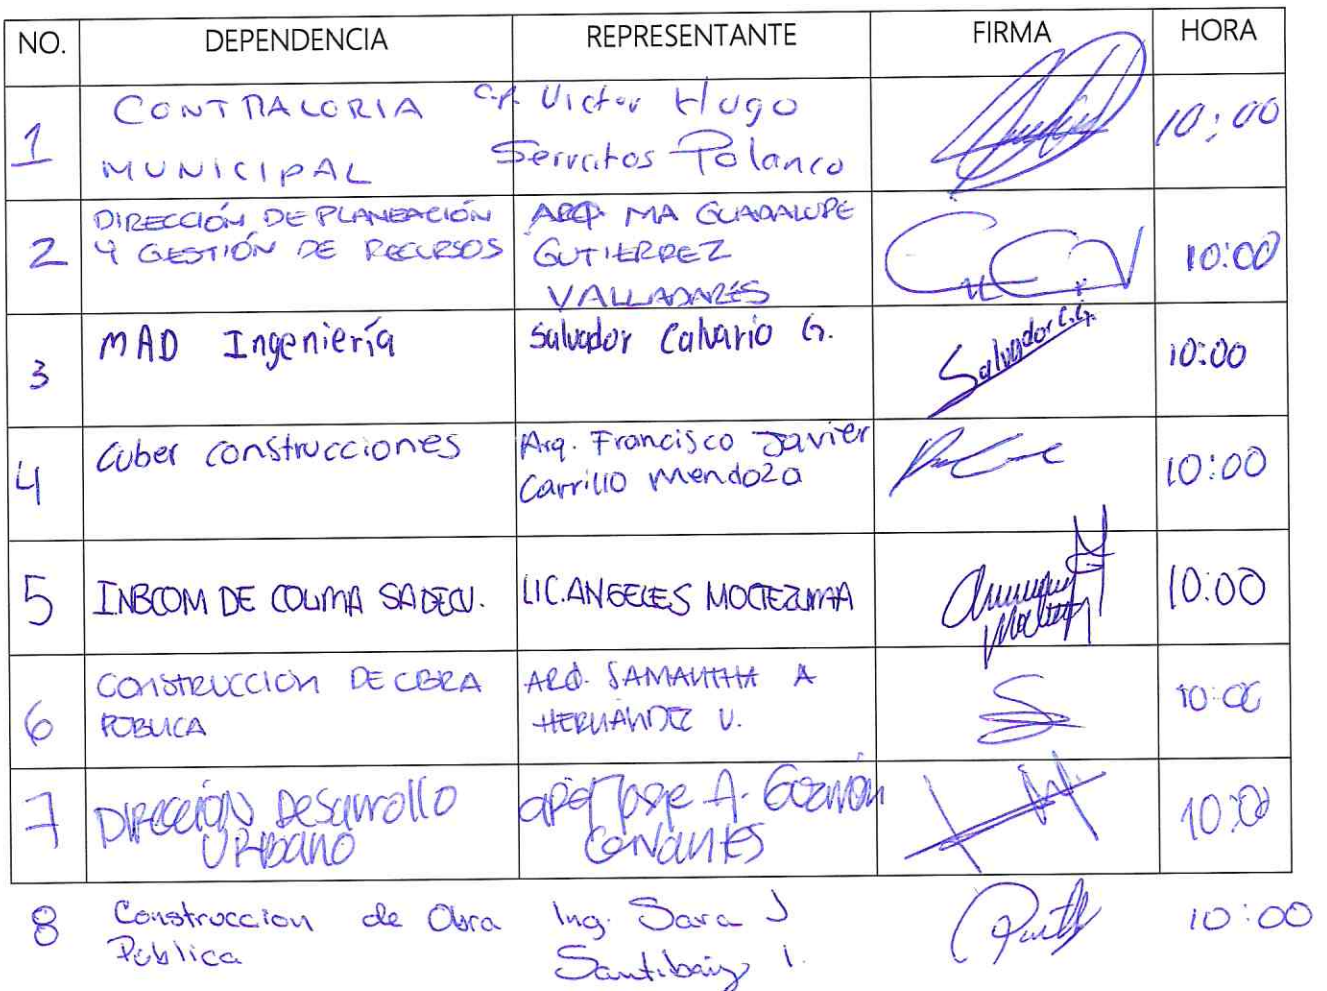 NO. DEPENDENCIA REPRESENTANTE FIRMA HORA
1 CONTRALORIA MUNICIPAL C.P. Victor Hugo Servitos Polanco 10:00
2 DIRECCIÓN DE PLANEACIÓN Y GESTIÓN DE RECURSOS ARQ. MA GUADALUPE GUTIERREZ VALLADARES 10:00
3 MAD Ingeniería Salvador Calvario G. Salvador C.G. 10:00
4 Cuber construcciones Arq. Francisco Javier Carrillo Mendoza 10:00
5 INBCOM DE COLIMA SA DE CV. LIC. ANGELES MOCTEZUMA 10:00
6 CONSTRUCCION DE OBRA PUBLICA ARQ. SAMANTHA A HERNÁNDEZ V. 10:00
7 DIRECCIÓN Desarrollo URBANO Jose A. Guzmán Cervantes 10:00
8 Construccion de Obra Publica Ing. Sara J 10:00